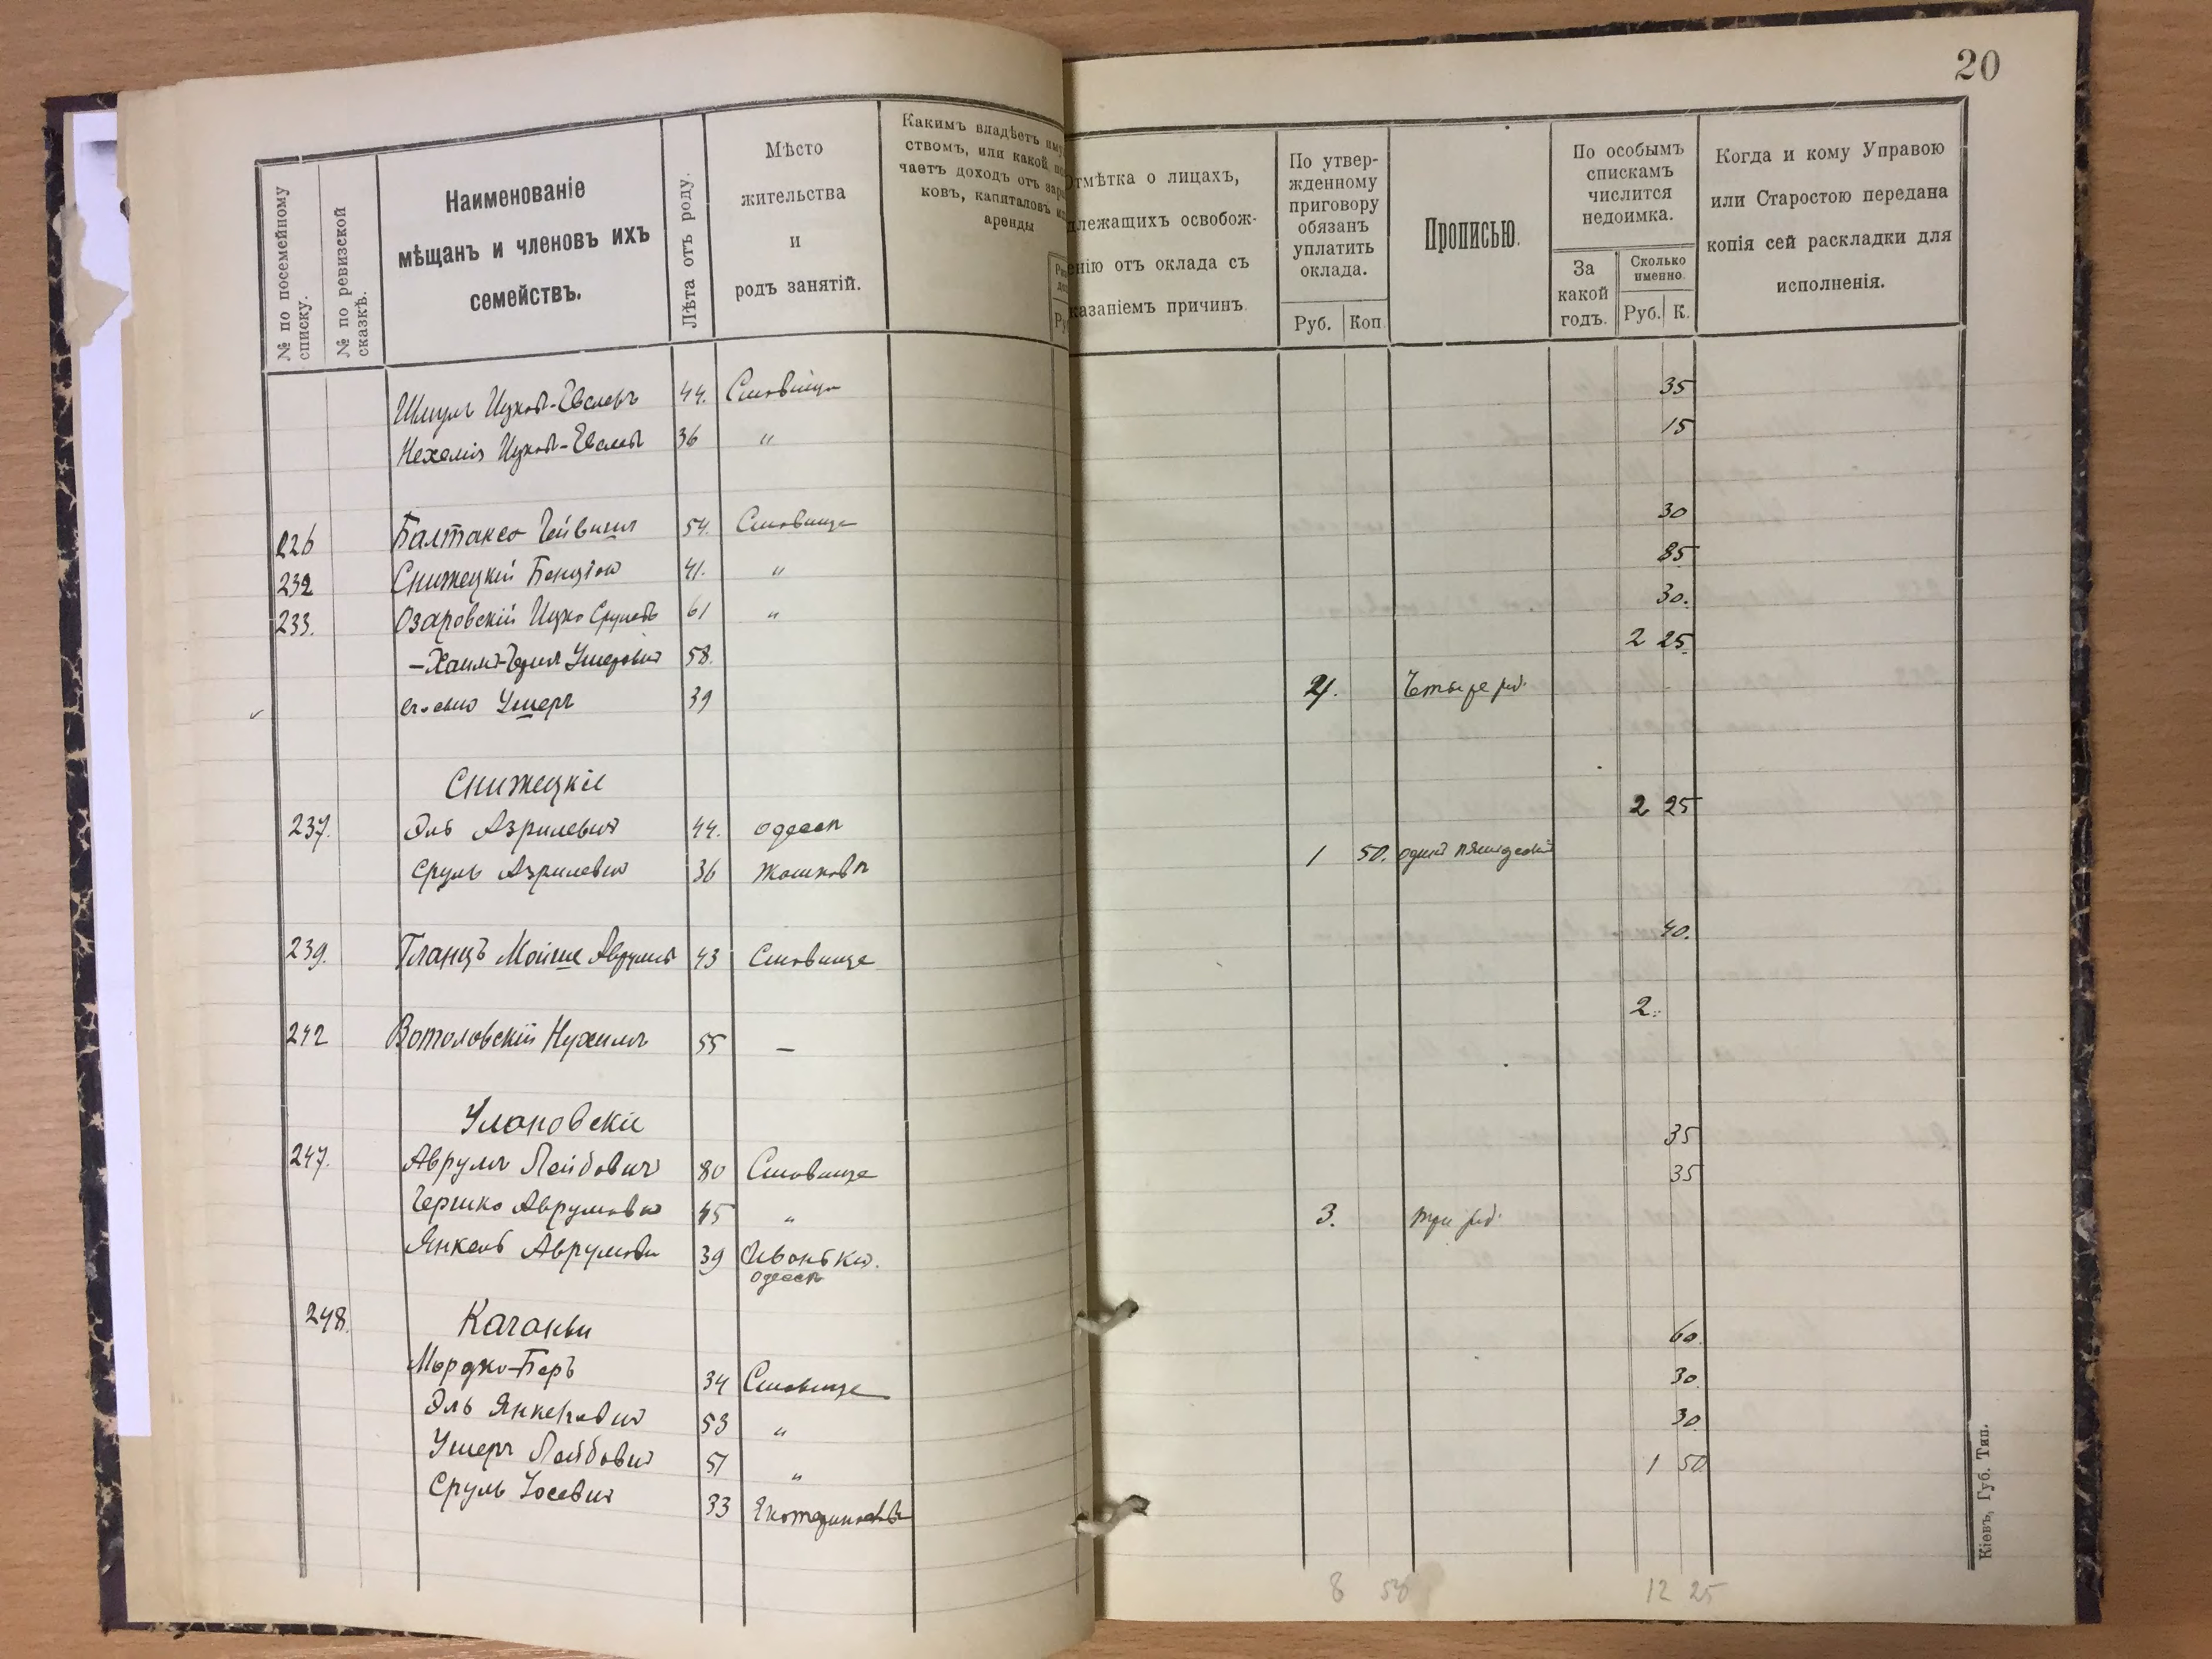 20
№ по посемейному списку.
№ по ревизской сказкѣ.
Наименованіе
мѣщанъ и членовъ ихъ
семействъ.
Лѣта отъ роду.
Мѣсто
жительства
и
родъ занятій.
Какимъ владѣетъ иму
ствомъ, или какой по
чаетъ доходъ отъ зара
ковъ, капиталовъ ил
аренды
Отмѣтка о лицахъ,
длежащихъ освобож-
енію отъ оклада съ
казаніемъ причинъ.
По утвер-
жденному
приговору
обязанъ
уплатить
оклада.
Руб. Коп.
Прописью.
По особымъ
спискамъ
числится
недоимка.
За
какой
годъ.
Сколько
именно.
Руб. К.
Когда и кому Управою
или Старостою передана
копія сей раскладки для
исполненія.
Шмуль Ицков- 44. 35
Нехемія Ицков- 36 " 15
226 Балтакса 54. Ставище 30
232 Снижецкій Бенціон 41. " 85
233. Озаровскій Ицко Срулев 61 " 30.
—Хаим- Ушерович 58. 2 25.
его сын Ушеръ 39 4. Четыре руб.
Снижецкіе
237. Эль Азрилевич 44. Одесса 2 25
Сруль Азрилевич 36 Жашков 1 50. один пятьдесят
239. Гланцъ Мойше Аврумов 43 Ставище 40.
242 Вотоловскій Нухимъ 55 — 2.
Улановскіе
247. Аврумъ Лейбович 80 Ставище 35
Гершко Аврумович 45 " 35
Янкель Аврумович 39 3. три руб.
Одесса
248. Каганы
Мордко-Беръ 34 Ставище 60.
Эль Янкелевич 53 " 30.
Ушеръ Лейбович 51 " 30.
Сруль Іосевич 33 1 50
8 50 12 25
Кіевъ, Губ. Тип.